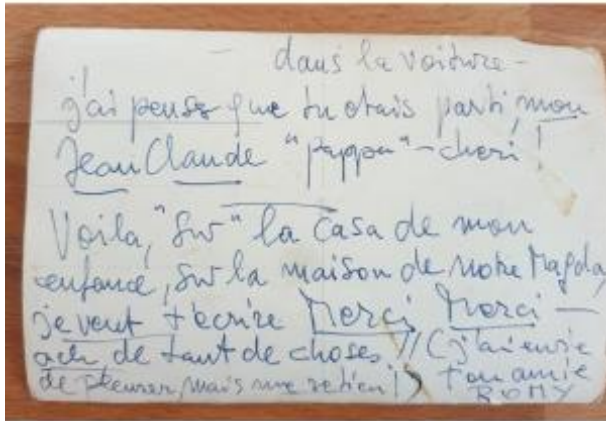 — dans la voiture —
j'ai pensé que tu étais parti, mon
Jean Claude "pappa" - cheri !
Voila, "sur" la casa de mon
enfance, sur la maison de notre Magda,
je veut t'écrire Merci Merci —
de tant de choses // (j'ai envie
de pleurer, mais me retien!) ton amie
ROMY